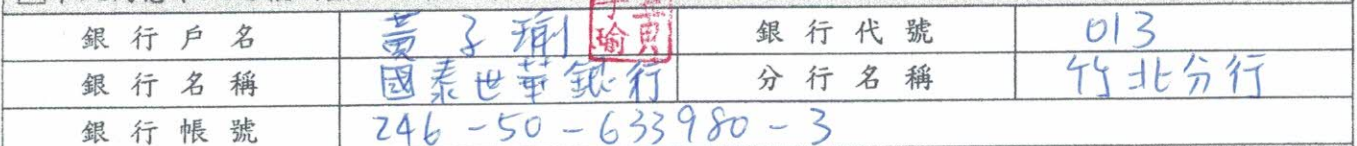 銀行戶名 黃子瑜 子黃瑜 銀行代號 013
銀行名稱 國泰世華銀行 分行名稱 竹北分行
銀行帳號 246-50-633980-3